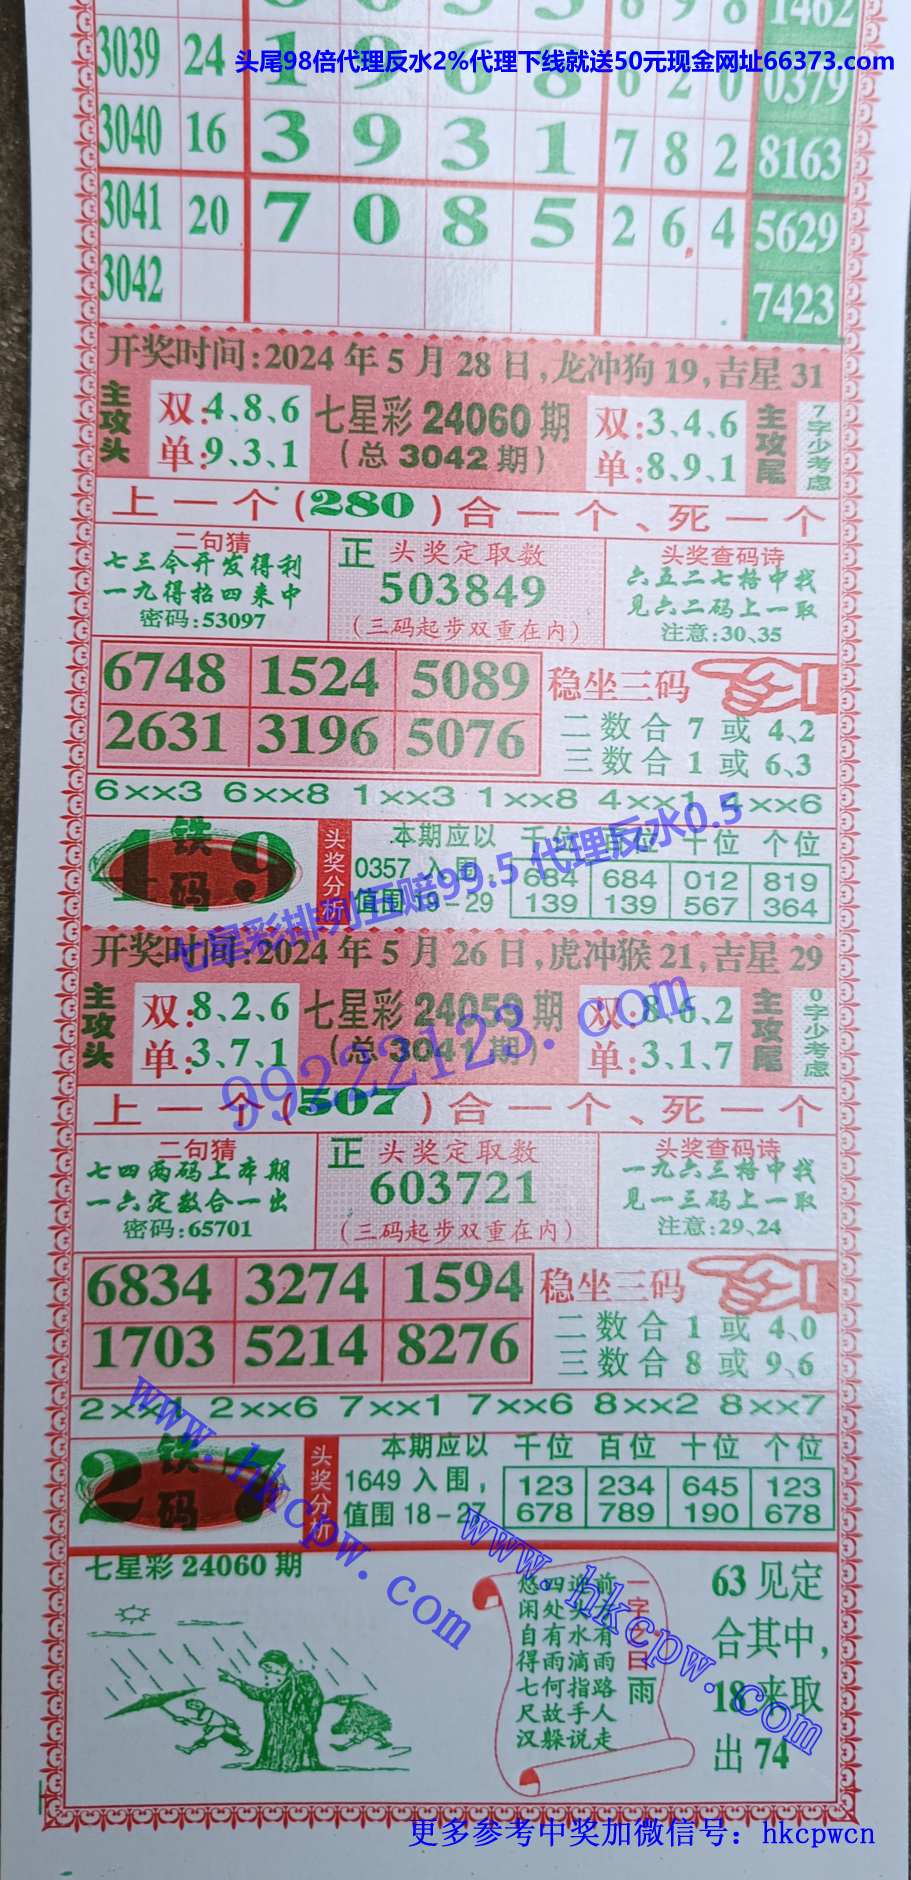 898 1462
头尾98倍代理反水2%代理下线就送50元现金网址66373.com
3039 24 1 9 6 8 6 2 0 0379
3040 16 3 9 3 1 7 8 2 8163
3041 20 7 0 8 5 2 6 4 5629
3042 7423
开奖时间:2024年5月28日,龙冲狗19,吉星31
主攻头
双:4、8、6
单:9、3、1
七星彩24060期
(总3042期)
双:3、4、6
单:8、9、1
主攻尾
7字少考虑
上一个(280)合一个、死一个
二句猜
七三今开发得利
一九得招四来中
密码:53097
正 头奖定取数
503849
(三码起步双重在内)
头奖查码诗
六五二七格中找
见六二码上一取
注意:30、35
6748 1524 5089
2631 3196 5076
稳坐三码
二数合7或4、2
三数合1或6、3
6××3 6××8 1××3 1××8 4××1 4××6
4 铁码 9
头奖分析
本期应以
0357入围
值围19-29
千位 百位 十位 个位
684 684 012 819
139 139 567 364
七星彩排列五赔99.5 代理反水0.5
开奖时间:2024年5月26日,虎冲猴21,吉星29
主攻头
双:8、2、6
单:3、7、1
七星彩24059期
(总3041期)
双:8、6、2
单:3、1、7
主攻尾
0字少考虑
99222123.com
上一个(507)合一个、死一个
二句猜
七四两码上本期
一六定数合一出
密码:65701
正 头奖定取数
603721
(三码起步双重在内)
头奖查码诗
一九六三格中找
见一三码上一取
注意:29、24
6834 3274 1594
1703 5214 8276
稳坐三码
二数合1或4、0
三数合8或9、6
2××1 2××6 7××1 7××6 8××2 8××7
2 铁码 7
头奖分析
本期应以
1649入围,
值围18-27
千位 百位 十位 个位
123 234 645 123
678 789 190 678
www.hkcpw.com
www.hkcpw.com
七星彩24060期
一字之曰雨
前方有雨路人走
迎头水滴指手说
四处有雨何故躲
悠闲自得七尺汉
63见定
合其中,
18来取
出74
更多参考中奖加微信号：hkcpwcn